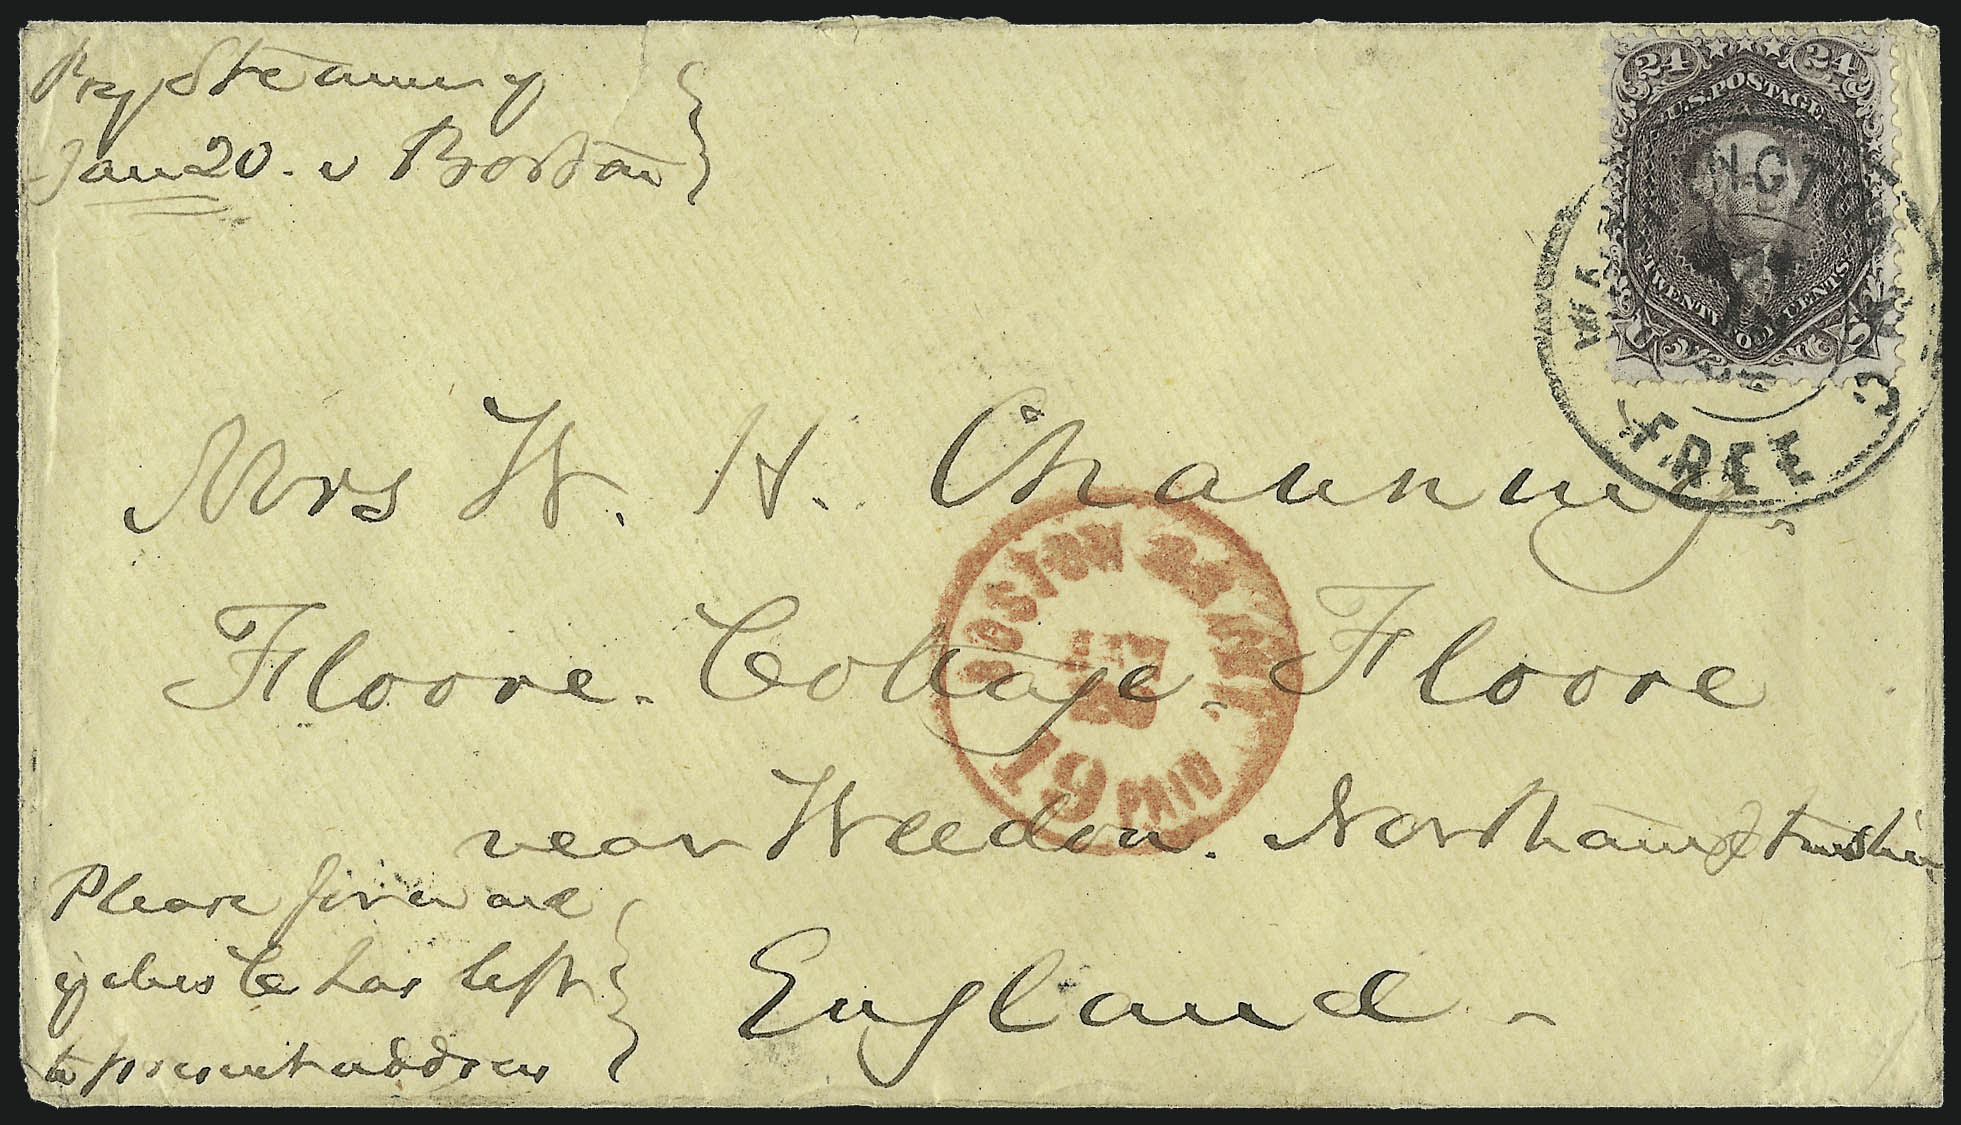 Pr Steamer of
Jan 20. v Boston
24 24
U.S. POSTAGE
TWENTY FOUR CENTS
U S
WASHINGTON D.C.
FREE
Mrs W. H. Channing
BOSTON BR. PKT.
20
19 PAID
Floore. Cottage. Floore
near Weedon. Northamptonshire
Please forward
if she has left
present address
England